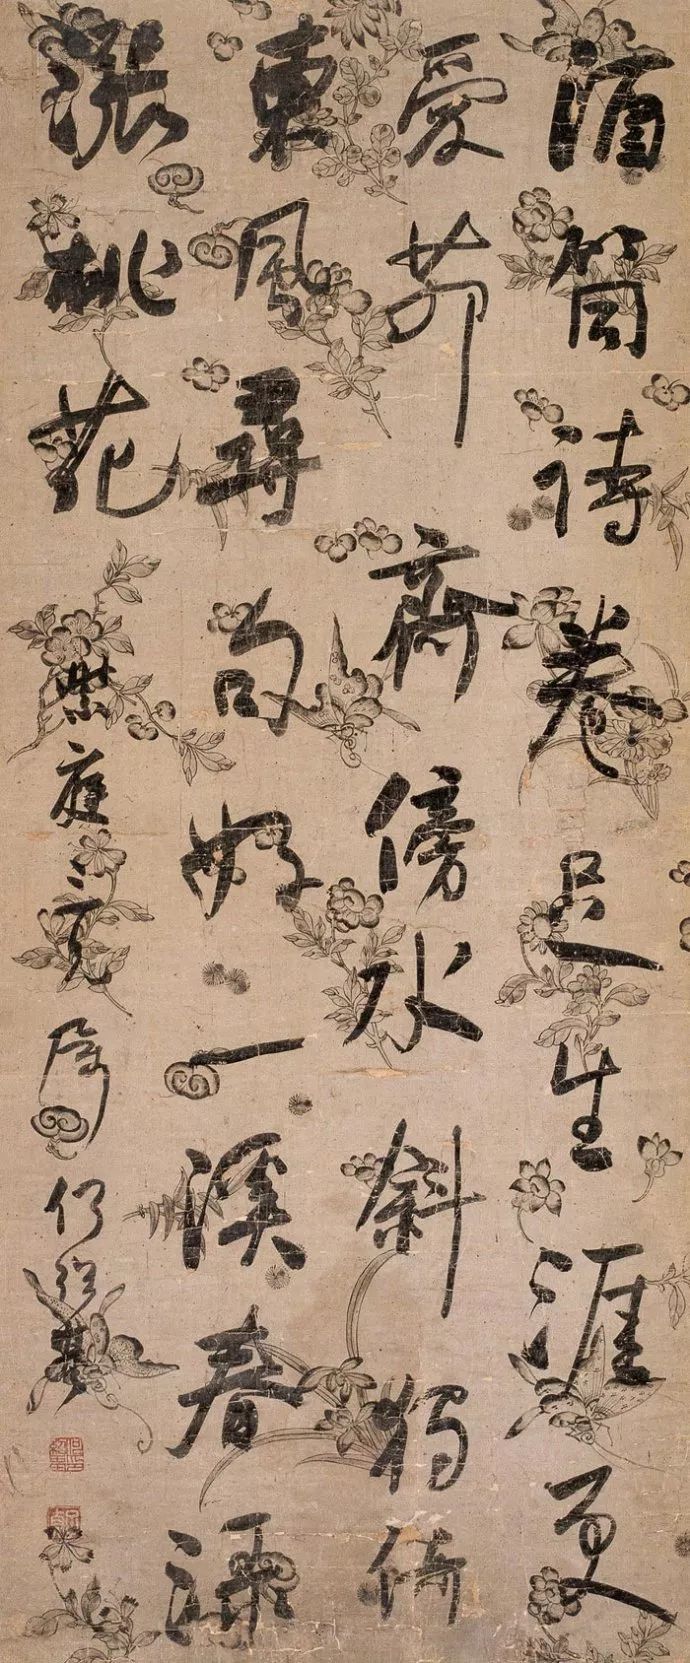 酒筒詩卷足生涯更
愛茆齋傍水斜獨倚
東風尋句好一溪春淥
漲桃花
紫庭兄屬 何紹基
子貞